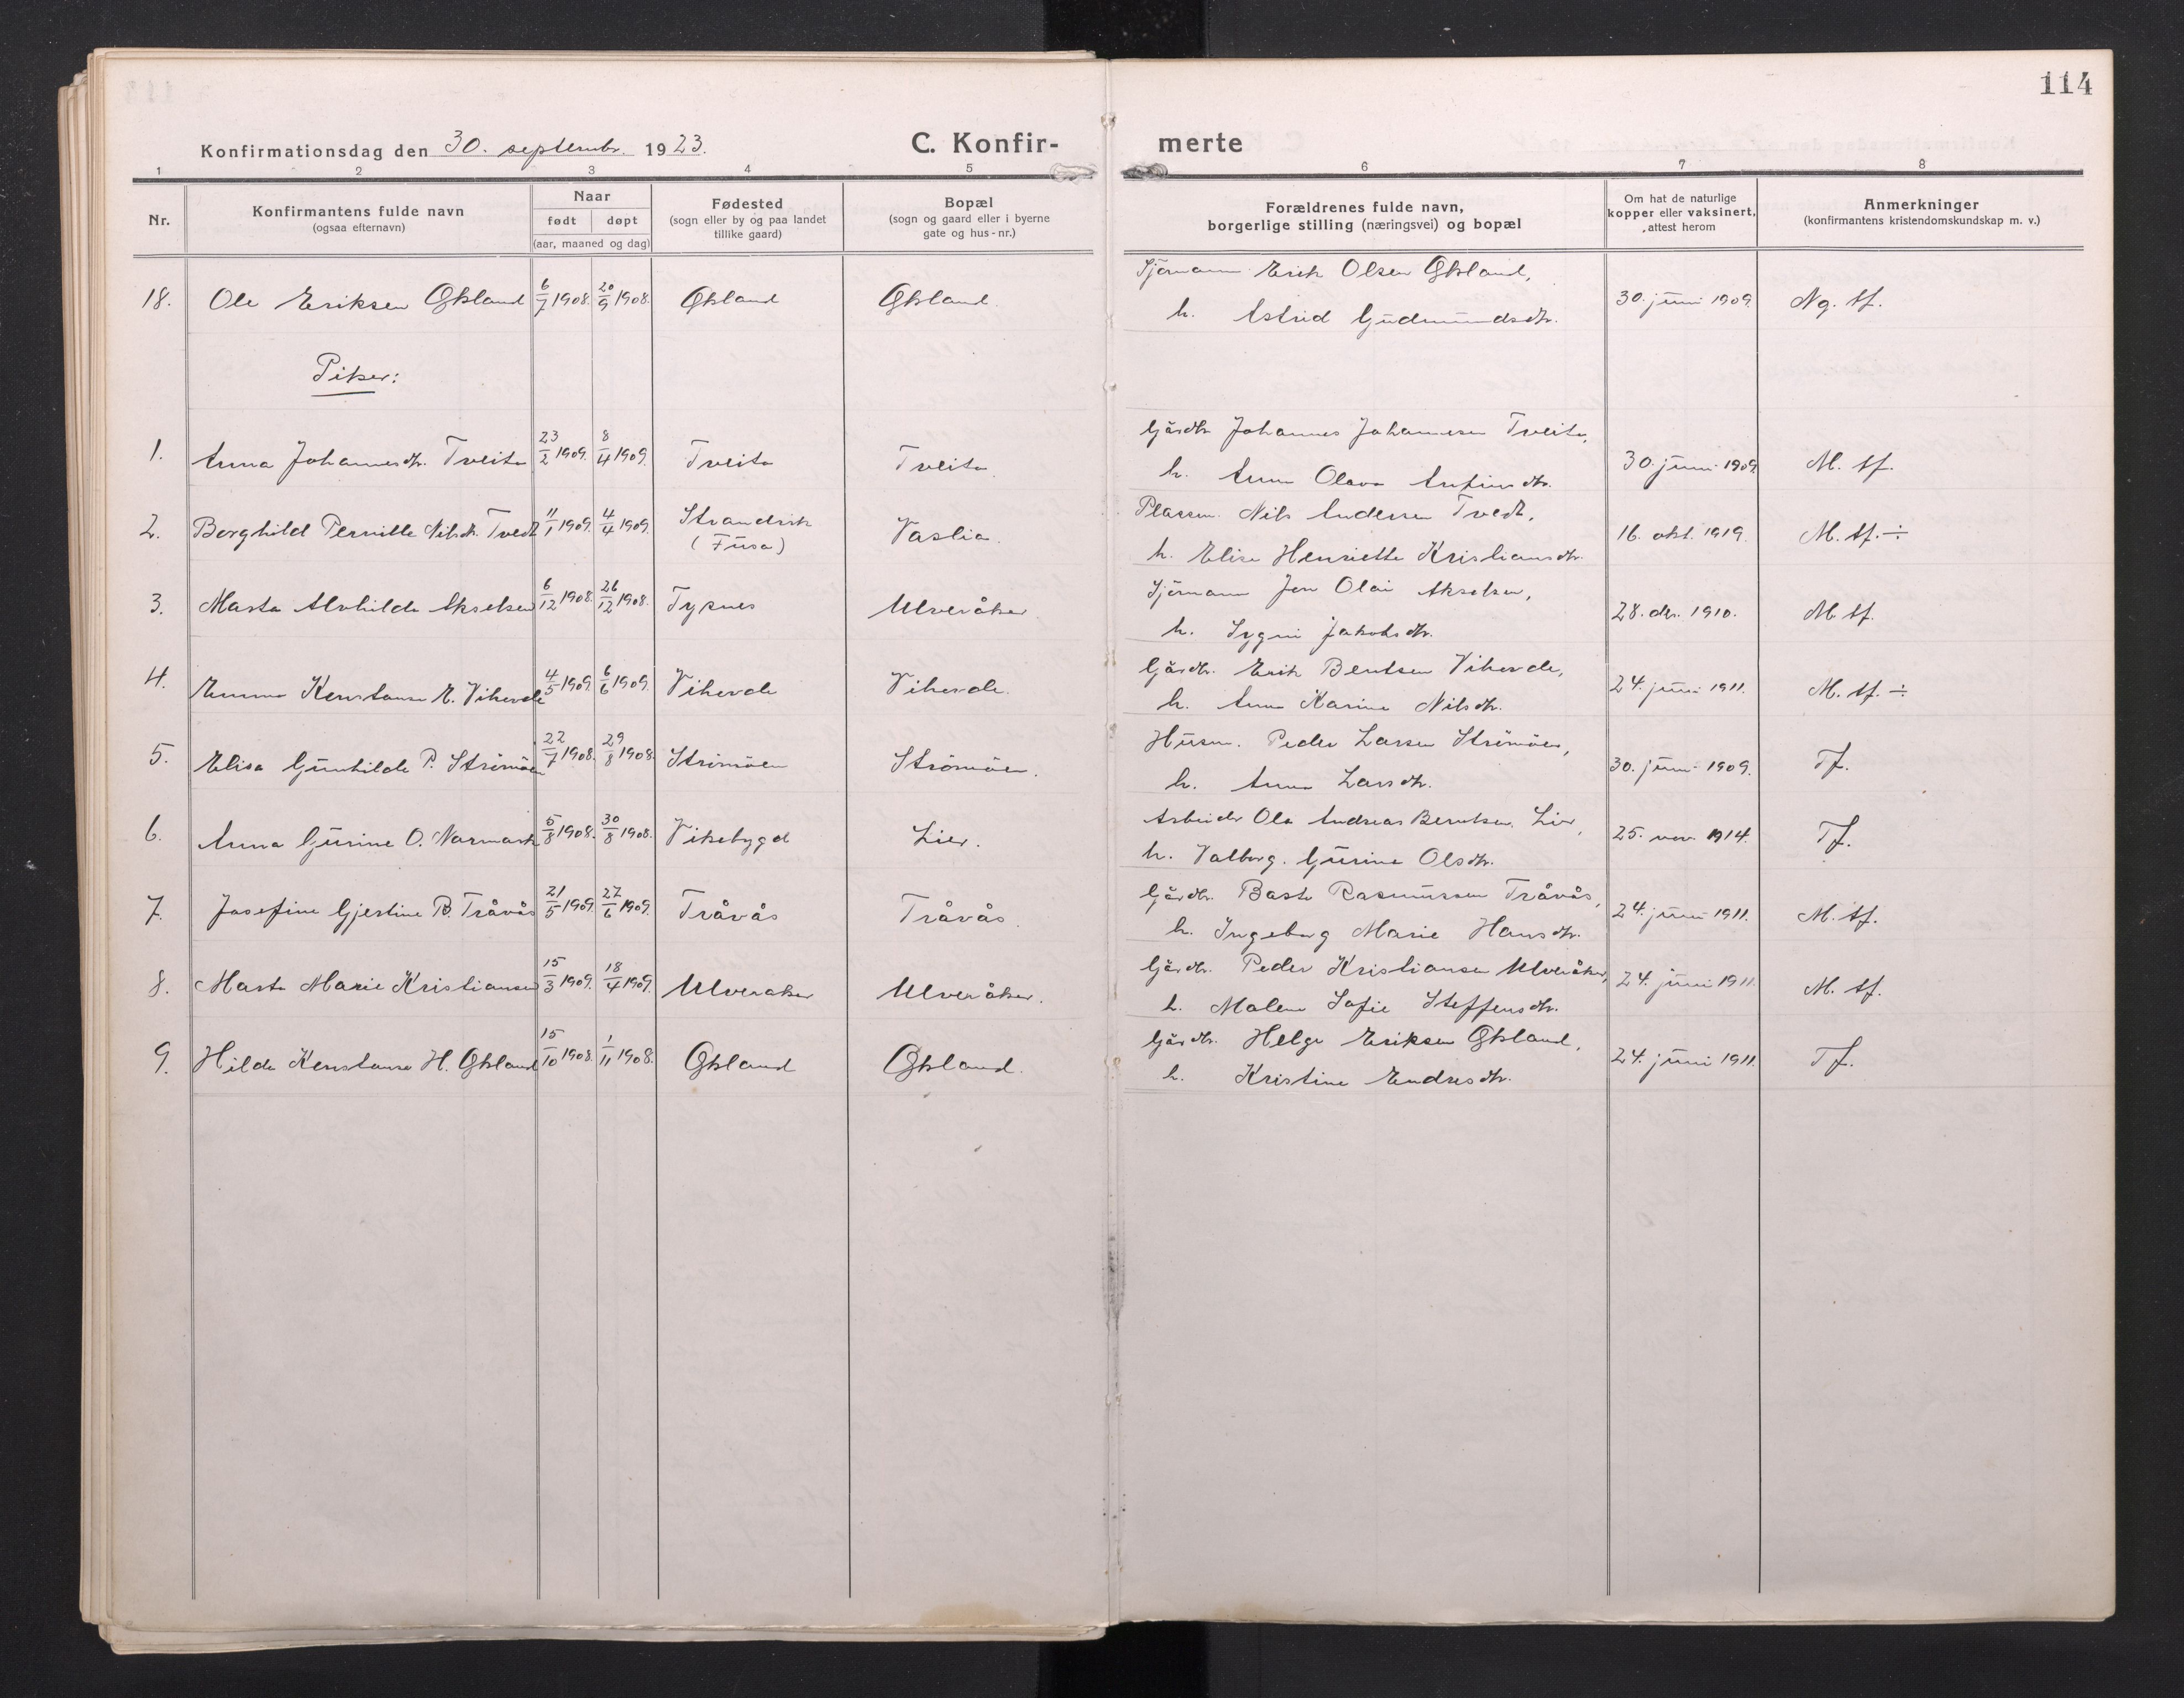 114
Konfirmationsdag den 30. septembr. 1923.
C. Konfir-
merte
1 2 3 4 5 6 7 8
Nr.
Konfirmantens fulde navn
(ogsaa efternavn)
Naar
født døpt
(aar, maaned og dag)
Fødested
(sogn eller by og paa landet
tillike gaard)
Bopæl
(sogn og gaard eller i byerne
gate og hus-nr.)
Forældrenes fulde navn,
borgerlige stilling (næringsvei) og bopæl
Om hat de naturlige
kopper eller vaksinert,
attest herom
Anmerkninger
(konfirmantens kristendomskundskap m. v.)
18. Ole Eriksen Økland 6/7 1908. 20/9 1908. Økland Økland.
Sjømann Erik Olsen Økland,
h. Astrid Gudmundsdtr. 30. juni 1909 Ng. tf.
Piker:
1. Anna Johannesdtr. Tveita 23/2 1909. 8/4 1909. Tveita Tveita.
Gårdbr. Johannes Johannesen Tveita,
h. Anna Olava Anfinsdtr. 30. juni 1909. M. tf.
2. Borghild Pernille Nilsdt. Tvedt 11/1 1909. 4/4 1909. Strandvik
(Fusa) Vaslia.
Plassm. Nils Andersen Tvedt,
h. Elise Henriette Kristiansdtr. 16. okt. 1919. M. tf. ÷
3. Marta Alvhilda Akselsen 6/12 1908. 26/12 1908. Tysnes Ulveråker
Sjømann Jon Olai Akselsen,
h. Sygni Jakobsdtr. 28. des. 1910. M tf.
4. Emma Konstanse E. Vihovde 4/5 1909. 6/6 1909. Vihovde Vihovde.
Gårdbr. Erik Bentsen Vihovde,
h. Anna Karina Nilsdtr. 24. juni 1911. M. tf. ÷
5. Elisa Gunhilde P. Strömöen 22/7 1908. 29/8 1908. Strömöen Strömöen.
Husm. Peder Larsen Strömöen,
h. Anna Larsdtr. 30. juni 1909. Tf.
6. Anna Gurine O. Narmark 5/8 1908. 30/8 1908. Vikebygd Lier.
Arbeider Ola Andreas Berntsen Lier,
h. Valborg Gurine Olsdtr. 25. nov. 1914. Tf.
7. Josefine Gjertine B. Tråvås 21/5 1909. 27/6 1909. Tråvås Tråvås.
Gårdbr. Baste Rasmussen Tråvås,
h. Ingeborg Marie Hansdtr. 24. juni 1911. M. tf.
8. Marta Marie Kristiansen 15/3 1909. 18/4 1909. Ulveraker Ulveråker.
Gårdbr. Peder Kristiansen Ulveråker,
h. Malene Sofie Steffensdtr. 24. juni 1911. M. tf.
9. Hilda Konstanse H. Økland 15/10 1908. 1/11 1908. Økland Økland.
Gårdbr. Helge Eriksen Økland,
h. Kristine Endresdtr. 24. juni 1911. Tf.